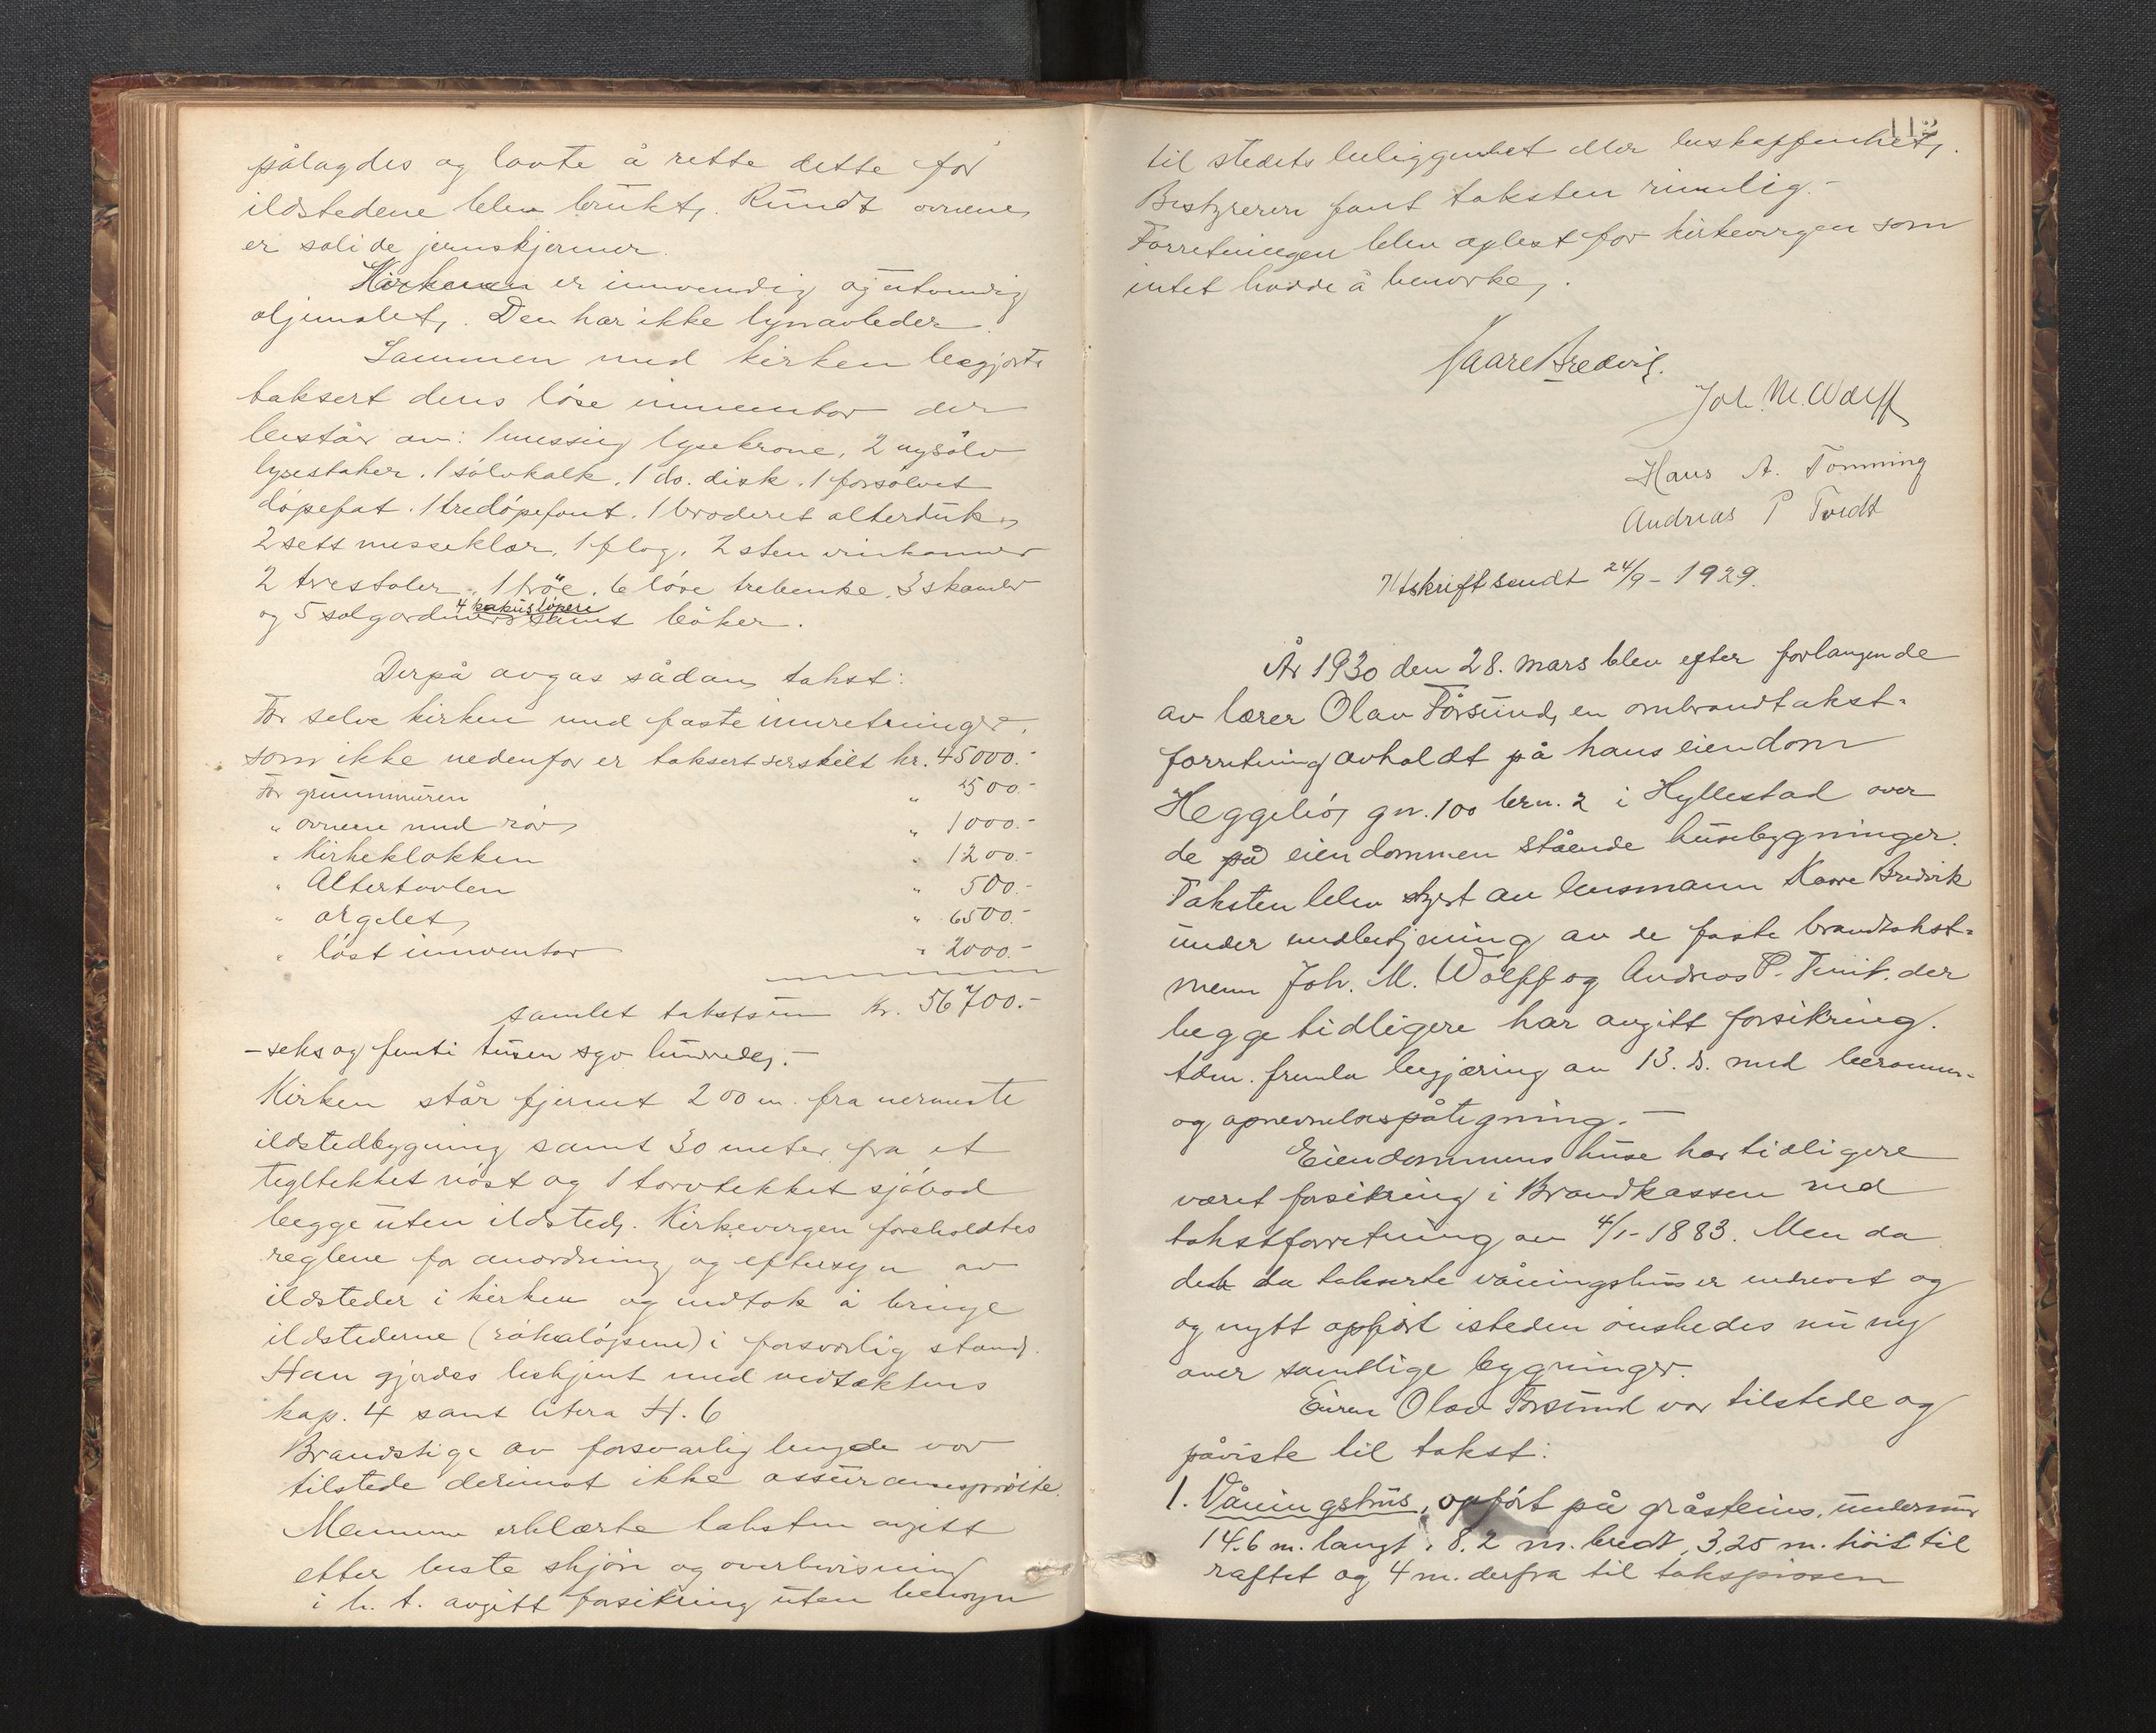 pålagdes og lovte å rette dette før
ildstedene blev brukt. Rundt ovnene
er solide jernskjermer.
Kirken er innvendig og utvendig
oljemalet. Den har ikke lynavleder.
Sammen med kirken begjærtes
taksert dens løse inventar der
består av: 1 messing lysekrone, 2 nysølv
lysestaker. 1 sølvkalk. 1 do. disk. 1 forsølvet
døpefat. 1 tredøpefont. 1 broderet alterduk,
2 sett messeklær, 1 flag, 2 sten vinkanner
2 trestoler, 6 løse trebenke, 3 skamler
4 kokusløpere
og 5 solgardiner samt bøker.
Derpå avgas sådan takst:
For selve kirken med faste innretninger,
som ikke nedenfor er taksert serskilt kr. 45000.-
For grunnmuren " 500.-
" ovnene med rør " 1000.-
" Kirkeklokken " 1200.-
" Altertavlen " 500.-
" orgelet " 6500.-
" løst innventar " 2000.-
samlet takstsum kr. 56700.-
- seks og femti tusen syv hundrede.-
Kirken står fjernet 200 m. fra nermeste
ildstedbygning samt 30 meter fra et
tegltekket nøst og 1 torvtekket sjøbod
begge uten ildsted. Kirkevergen foreholdtes
reglene for anordning og eftersyn av
ildsteder i kirken og vedtok å bringe
ildstederne (røkaløpene) i forsvarlig stand.
Han gjordes bekjent med vedtektens
kap. 4 samt litera H. 6
Brandstige av forsvarlig lengde var
tilstede derimot ikke assuransesprøite.
Mennene erklærte taksten avgitt
etter beste skjøn og overbevisning
i h. t. avgitt forsikring uten hensyn
112
til stedets beliggenhet eller beskaffenhet.
Bestyreren fant taksten rimelig.-
Forretningen blev oplest for kirkevergen som
intet hadde å bemerke.
Kaare Bredvik.
Joh. M. Wolff
Hans A. Tømming
Andreas P Tveit
Utskrift sendt 24/9 - 1929.
År 1930 den 28. mars blev efter forlangende
av lærer Olav Førsund, en ombrandtakst-
forretning avholdt på hans eiendom
Heggelid gn. 100 brn. 2 i Hyllestad over
de på eiendommen stående husebygninger.
Taksten blev styrt av lensmann Kaare Bredvik
under medbetjening av de faste brandtakst-
menn Joh. M. Wolff og Andreas P. Tveit. der
begge tidligere har avgitt forsikring.
tdm. fremla begjæring av 13. ds. med berammelses-
og opnevnelsespåtegning. -
Eiendommens huse har tidligere
været forsikring i Brandkassen ved
takstforretning av 4/1 - 1883. Men da
det da takserte våningshus er nedrevet og
og nytt opført isteden ønskedes nu ny
over samtlige bygninger.
Eieren Olav Førsund var tilstede og
påviste til takst:
1. Våningshus, opført på gråsteins undermur
14.6 m. langt, 8.2 m. bredt, 3.25 m. høit til
raftet og 4 m. derfra til takspissen